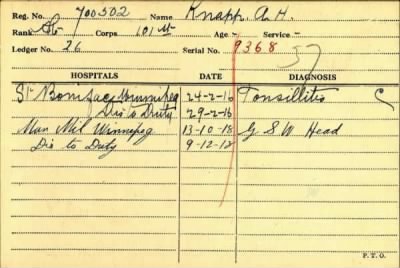 Reg. No. 700502 Name Knapp. A H.
Rank Corps 101st Age - Service -
Ledger No. 26 Serial No. 9368 57
HOSPITALS DATE DIAGNOSIS
St Boniface Winnipeg 24-2-16 Tonsillitis C
Dis to Duty 29-2-16
Man Mil Winnipeg 13-10-18 G S W Head
Dis to Duty 9-12-18
P.T.O.